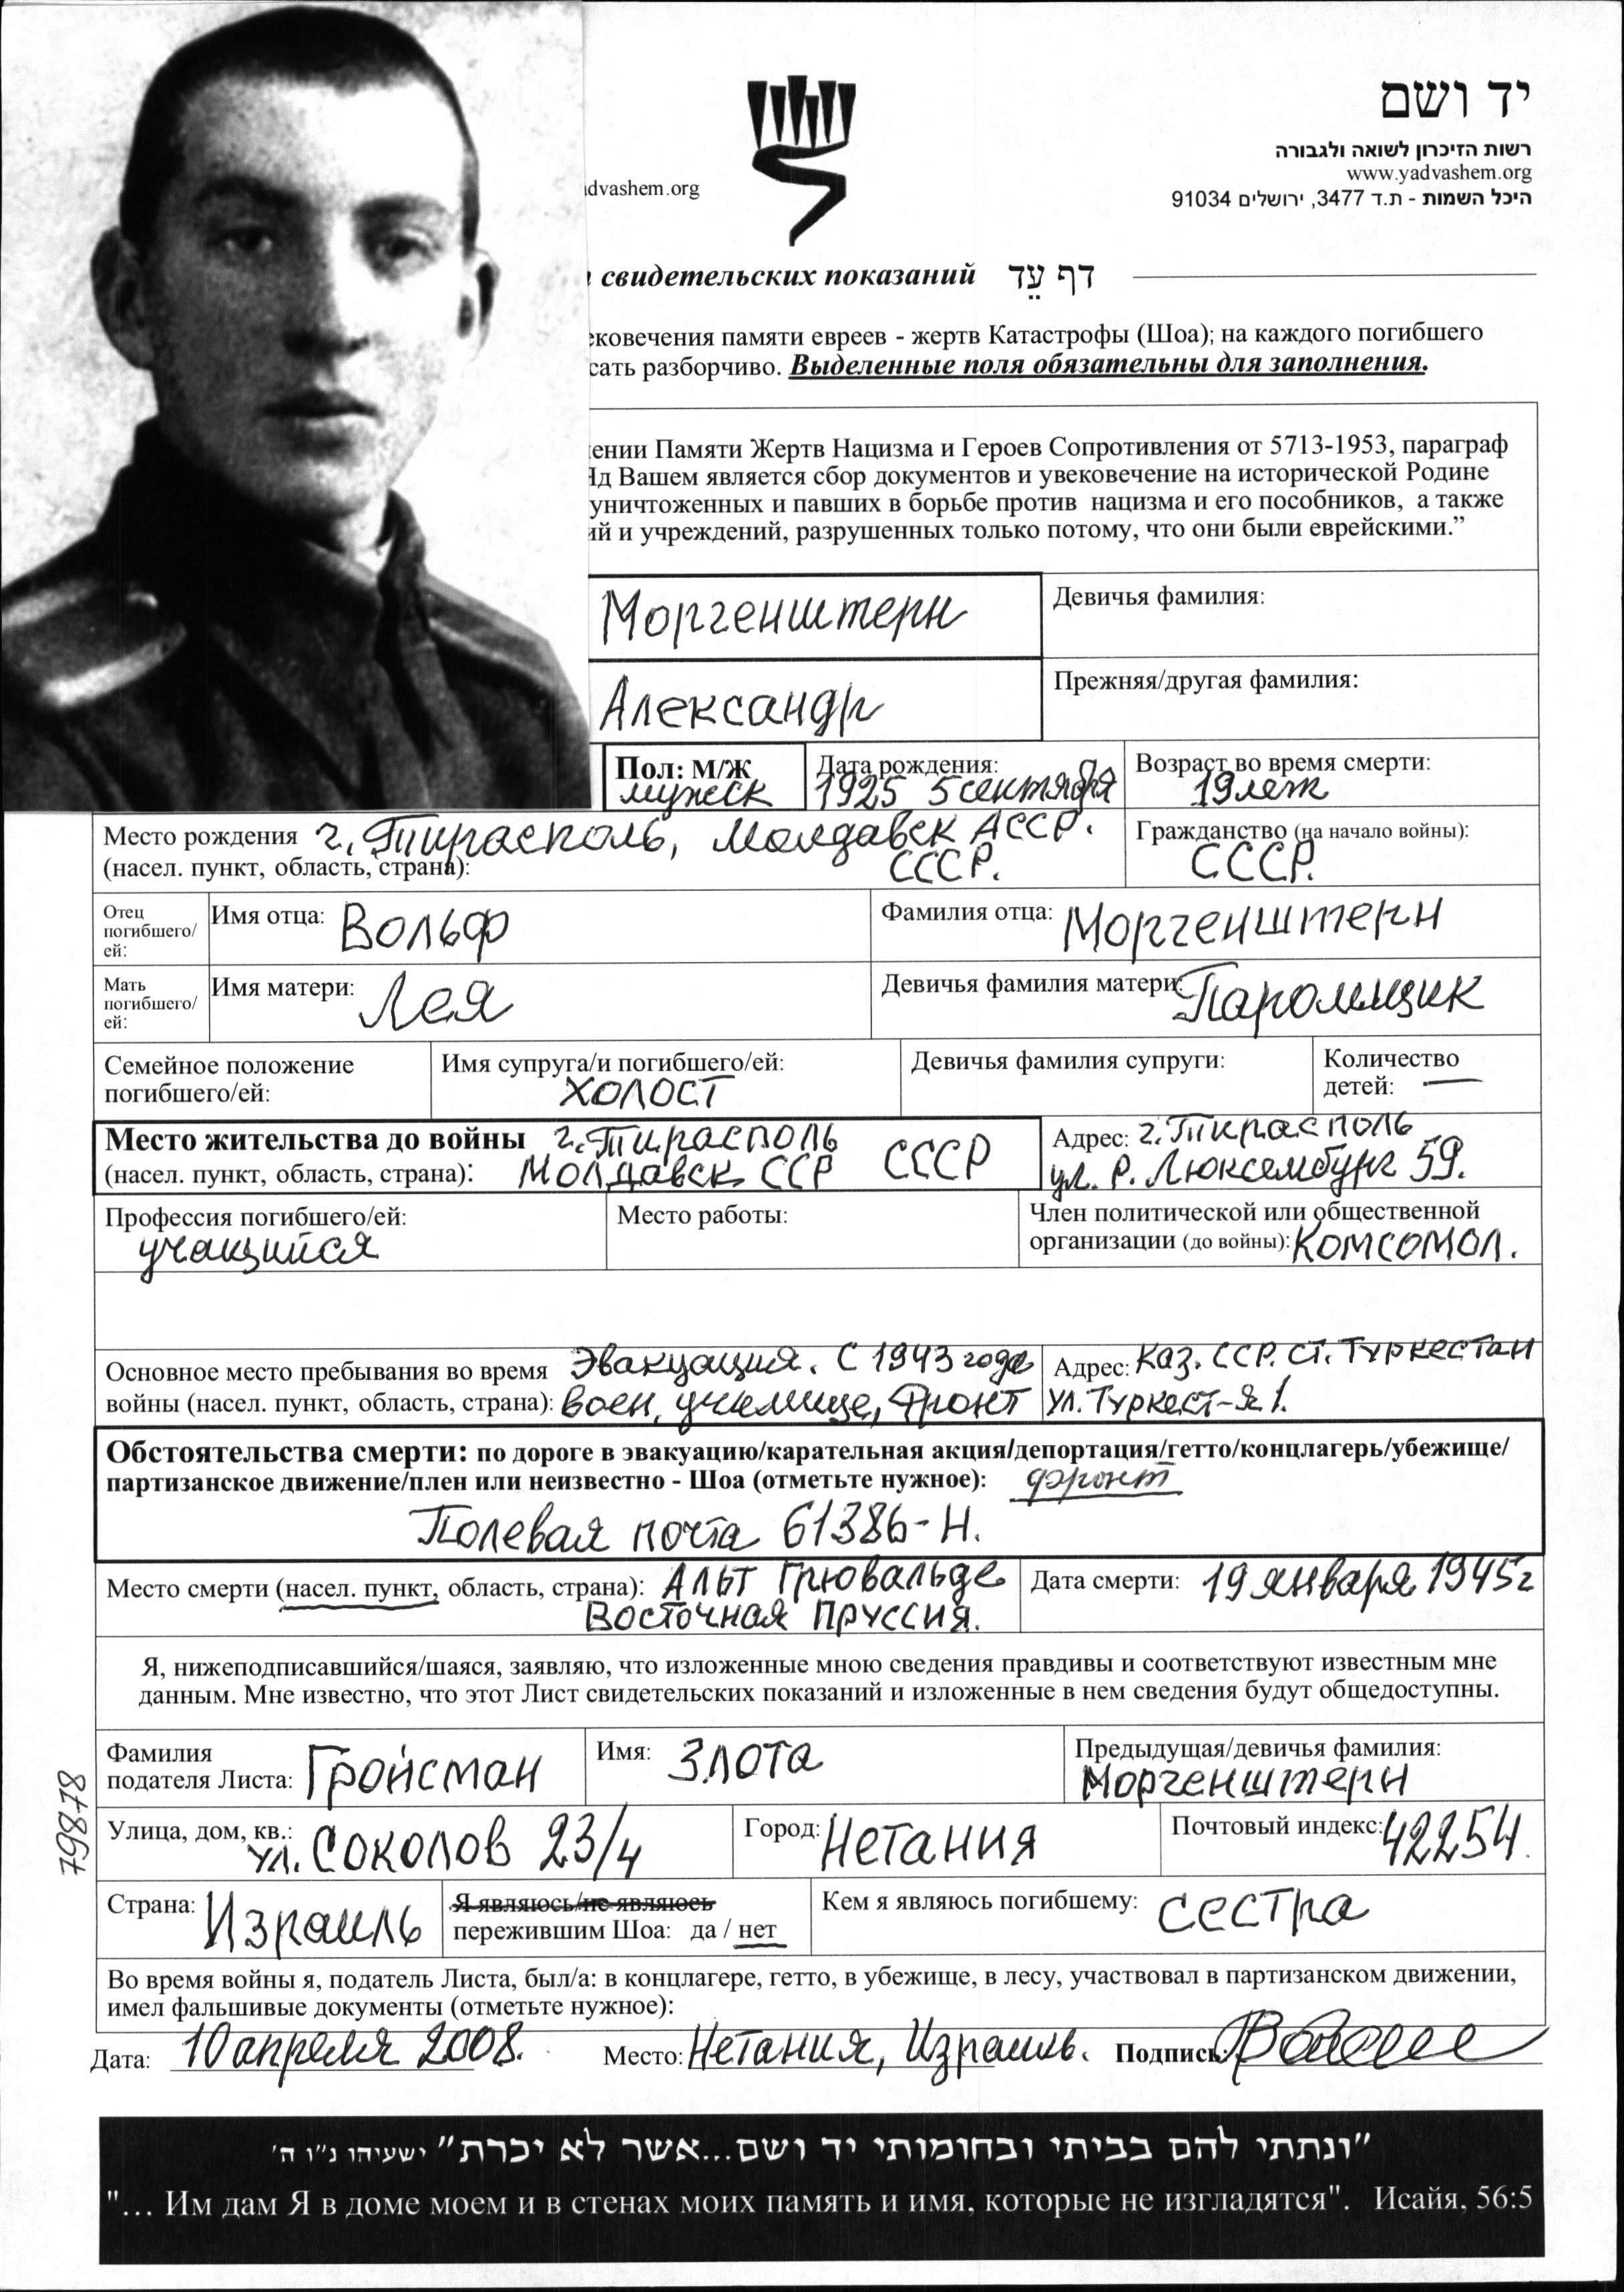 יד ושם
רשות הזיכרון לשואה ולגבורה
www.yadvashem.org
dvashem.org
היכל השמות - ת.ד 3477, ירושלים 91034
свидетельских показаний דף עֵד
ековечения памяти евреев - жертв Катастрофы (Шоа); на каждого погибшего
сать разборчиво. Выделенные поля обязательны для заполнения.
ении Памяти Жертв Нацизма и Героев Сопротивления от 5713-1953, параграф
Яд Вашем является сбор документов и увековечение на исторической Родине
уничтоженных и павших в борьбе против нацизма и его пособников, а также
ий и учреждений, разрушенных только потому, что они были еврейскими.”
Моргенштерн Девичья фамилия:
Александр Прежняя/другая фамилия:
Пол: М/Ж Дата рождения: Возраст во время смерти:
мужск 1925 5 сентября 19 лет
Место рождения г. Тирасполь, Молдавск АССР. Гражданство (на начало войны):
(насел. пункт, область, страна): СССР. СССР.
Отец погибшего/ей: Имя отца: Вольф Фамилия отца: Моргенштерн
Мать погибшего/ей: Имя матери: Лея Девичья фамилия матери: Паромщик
Семейное положение Имя супруга/и погибшего/ей: Девичья фамилия супруги: Количество
погибшего/ей: холост детей: —
Место жительства до войны г. Тирасполь Адрес: г. Тирасполь
(насел. пункт, область, страна): Молдавск ССР СССР ул. Р. Люксембург 59.
Профессия погибшего/ей: Место работы: Член политической или общественной
учащийся организации (до войны): Комсомол.
Основное место пребывания во время Эвакуация. С 1943 года Адрес: Каз. ССР. ст. Туркестан
войны (насел. пункт, область, страна): воен. училище, Фронт ул. Туркест-я 1.
Обстоятельства смерти: по дороге в эвакуацию/карательная акция/депортация/гетто/концлагерь/убежище/
партизанское движение/плен или неизвестно - Шоа (отметьте нужное): фронт
Полевая почта 61386-Н.
Место смерти (насел. пункт, область, страна): Альт Грювальде Дата смерти: 19 января 1945 г
Восточная Пруссия.
Я, нижеподписавшийся/шаяся, заявляю, что изложенные мною сведения правдивы и соответствуют известным мне
данным. Мне известно, что этот Лист свидетельских показаний и изложенные в нем сведения будут общедоступны.
Фамилия Имя: Злота Предыдущая/девичья фамилия:
подателя Листа: Гройсман Моргенштерн
Улица, дом, кв.: ул. Соколов 23/4 Город: Нетания Почтовый индекс: 42254.
Страна: Израиль Я являюсь/не являюсь Кем я являюсь погибшему: сестра
пережившим Шоа: да / нет
Во время войны я, податель Листа, был/а: в концлагере, гетто, в убежище, в лесу, участвовал в партизанском движении,
имел фальшивые документы (отметьте нужное):
Дата: 10 апреля 2008. Место: Нетания, Израиль. Подпись:
79878
"ונתתי להם בביתי ובחומותי יד ושם...אשר לא יכרת" ישעיהו נ"ו ה'
"... Им дам Я в доме моем и в стенах моих память и имя, которые не изгладятся". Исайя, 56:5